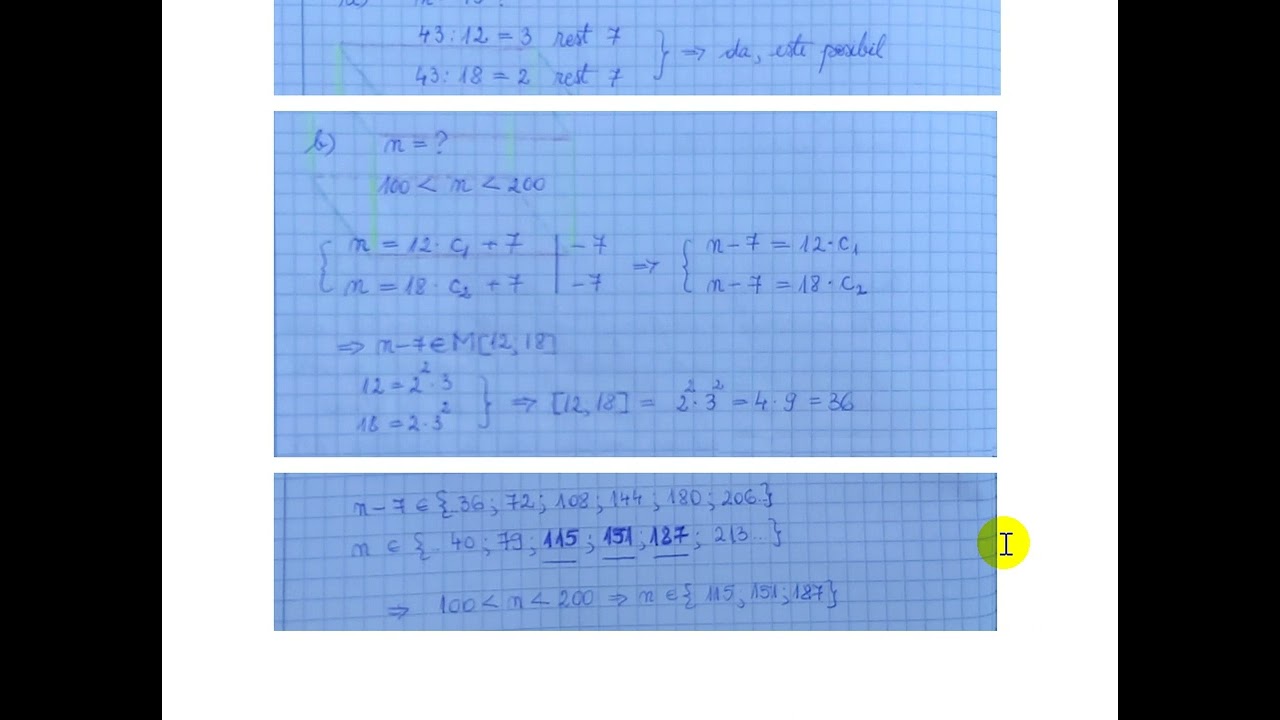 43 : 12 = 3 rest 7
43 : 18 = 2 rest 7 } ⇒ da, este posibil
b) n = ?
100 < n < 200
{ n = 12 · c₁ + 7 | - 7
n = 18 · c₂ + 7 | - 7 ⇒ { n - 7 = 12 · c₁
n - 7 = 18 · c₂
⇒ n - 7 ∈ M[12, 18]
12 = 2² · 3
18 = 2 · 3² } ⇒ [12, 18] = 2² · 3² = 4 · 9 = 36
n - 7 ∈ {..36; 72; 108; 144; 180; 206..}
n ∈ {.. 40; 79; 115; 151; 187; 213...}
⇒ 100 < n < 200 ⇒ n ∈ { 115, 151; 187}